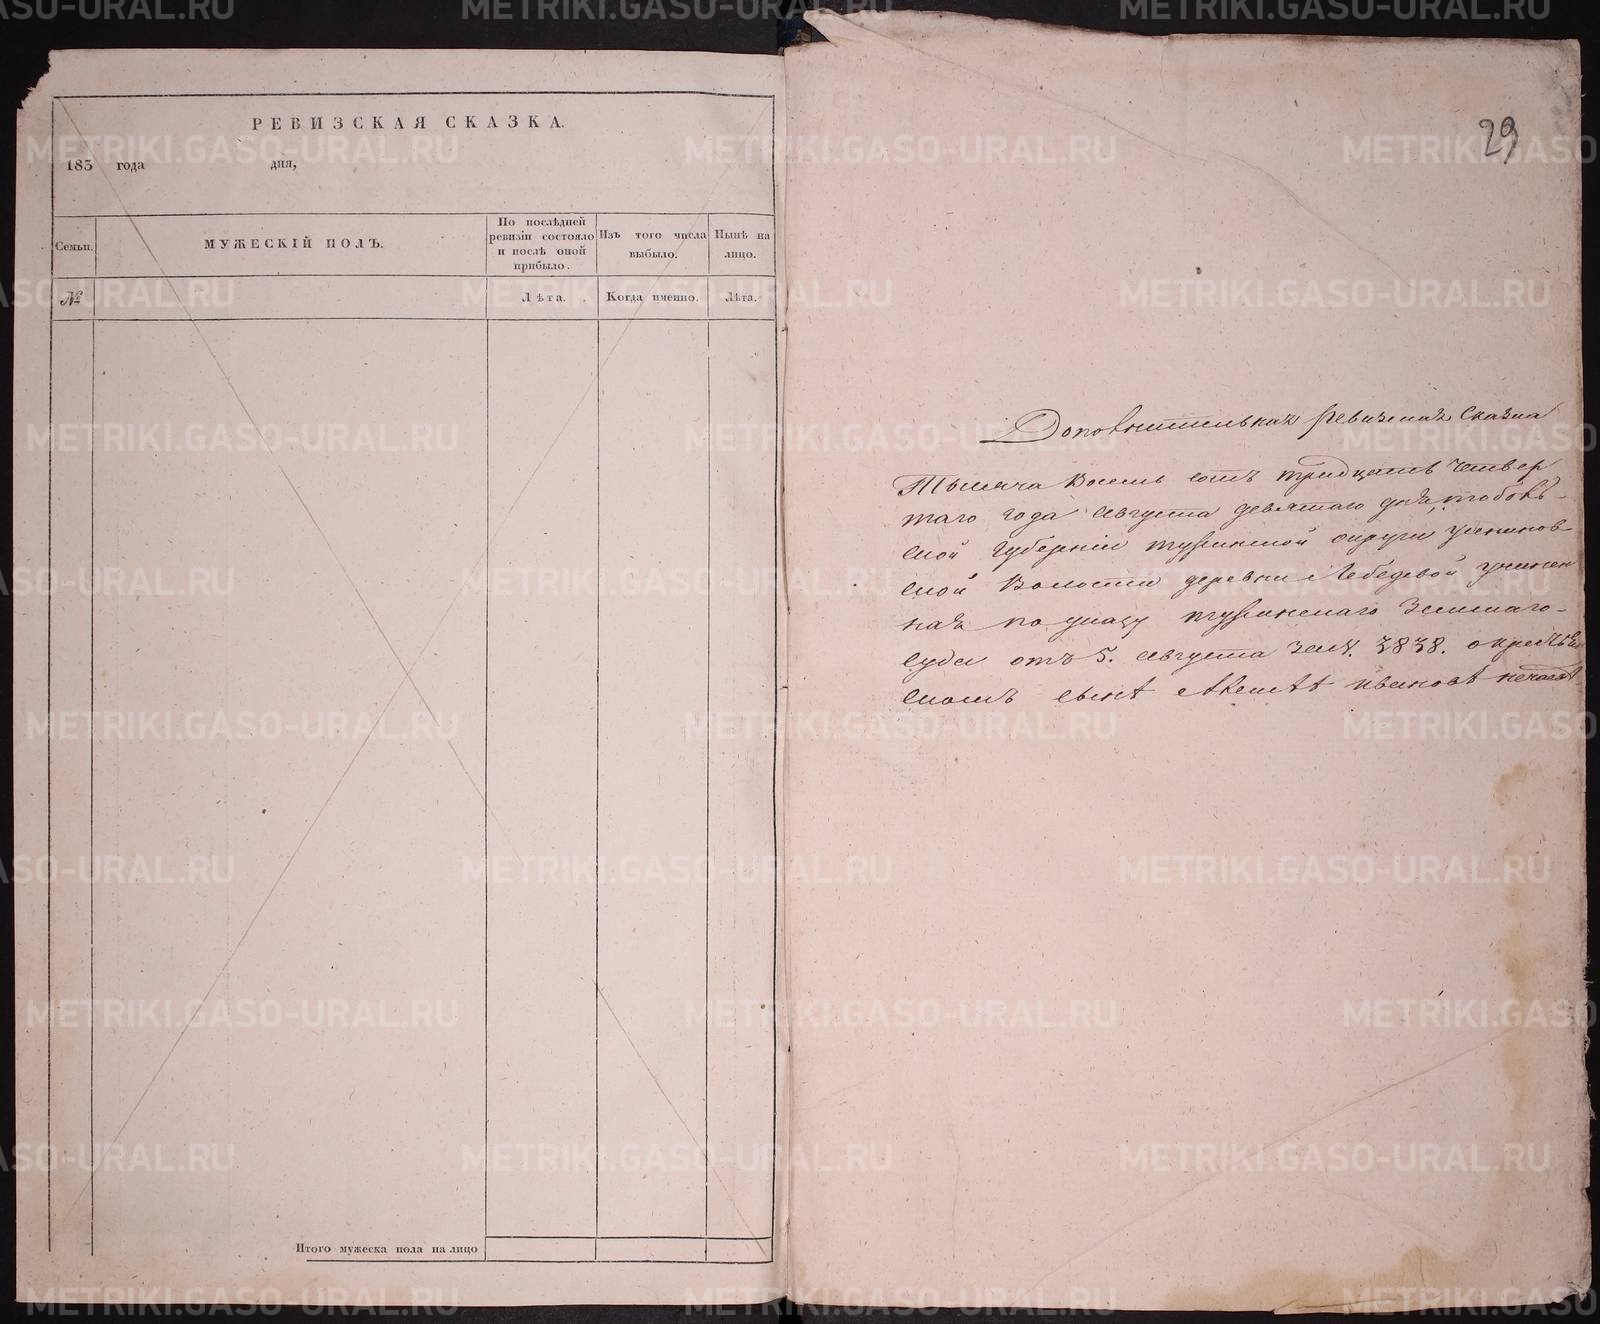 РЕВИЗСКАЯ СКАЗКА.
183 года дня,
Семьи.
МУЖЕСКІЙ ПОЛЪ.
По послѣдней ревизіи состояло и послѣ оной прибыло.
Изъ того числа выбыло.
Нынѣ на лицо.
№
Лѣта.
Когда именно.
Лѣта.
Итого мужеска пола на лицо
29
Дополнительная ревизская Сказка
Тысяча восемь сотъ тридцать четвер
таго года Августа девятаго дня, тобол
ской губерніи туринской округи
ской Волости деревни Лебедевой учинен
ная по указу туринскаго Земскаго
Суда отъ 5. Августа за №. 3838. о крестьян
скомъ сынѣ Ивановѣ
METRIKI.GASO-URAL.RU